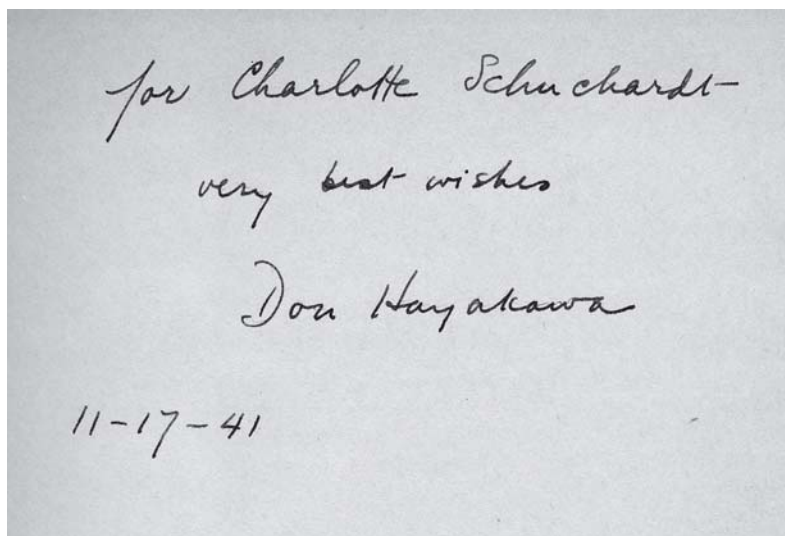 for Charlotte Schuchardt
very best wishes
Don Hayakawa
11-17-41